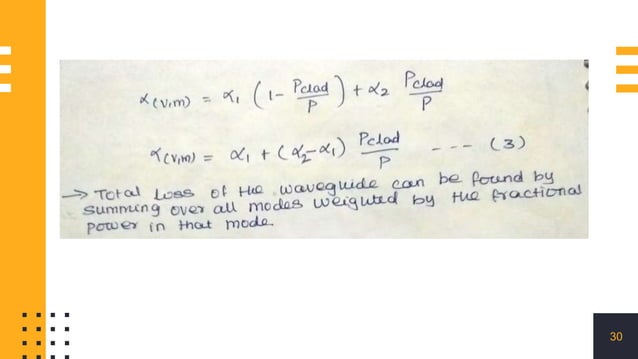 α(v,m) = α₁ (1 - Pclad/P) + α₂ Pclad/P
α(v,m) = α₁ + (α₂-α₁) Pclad/P --- (3)
→ Total Loss of the waveguide can be found by
summing over all modes weighted by the fractional
power in that mode.
30